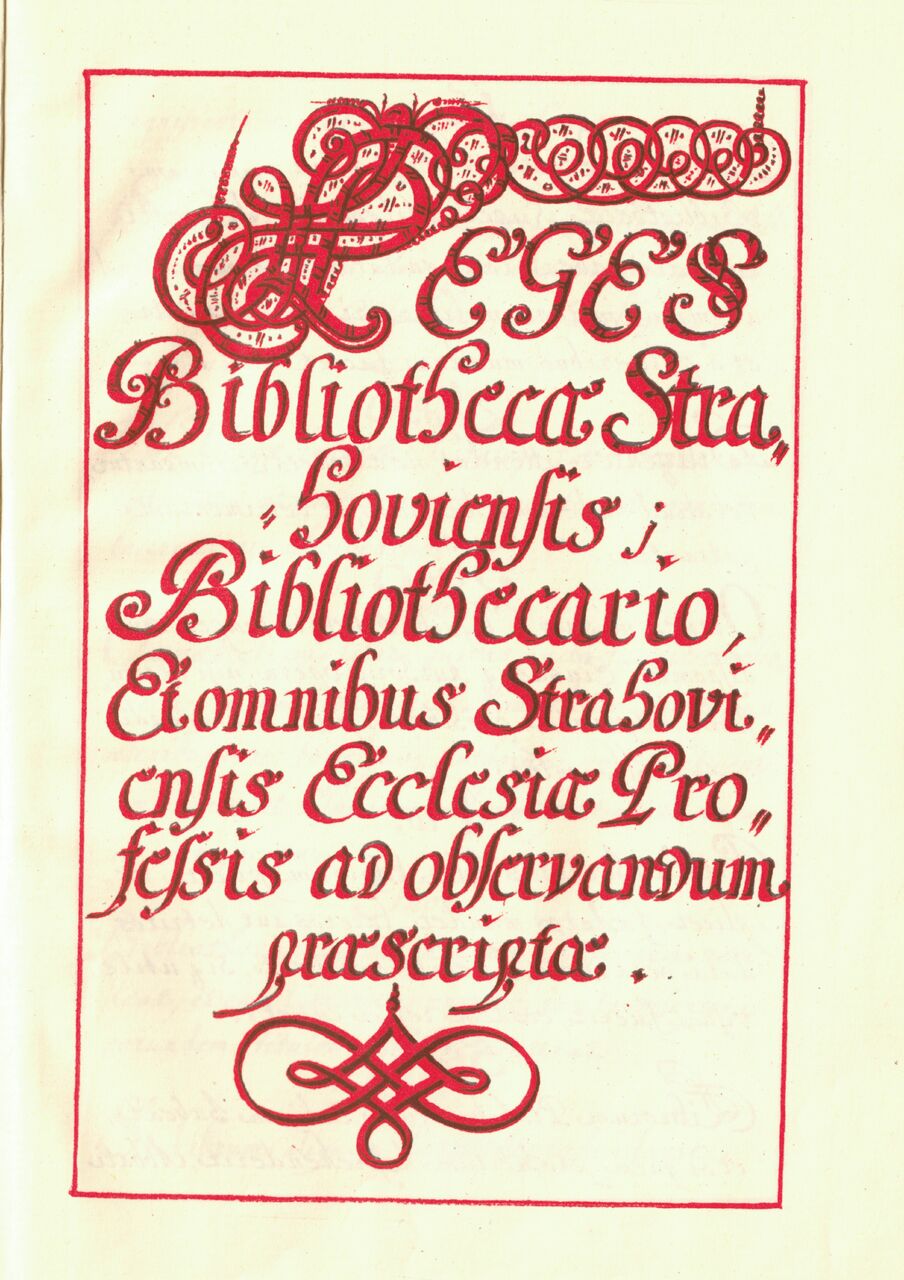 LEGES
Bibliothecæ Stra„
„hoviensis ;
Bibliothecario,
Et omnibus Strahovi„
ensis Ecclesiæ Pro„
fessis ad observandum
præscriptæ .